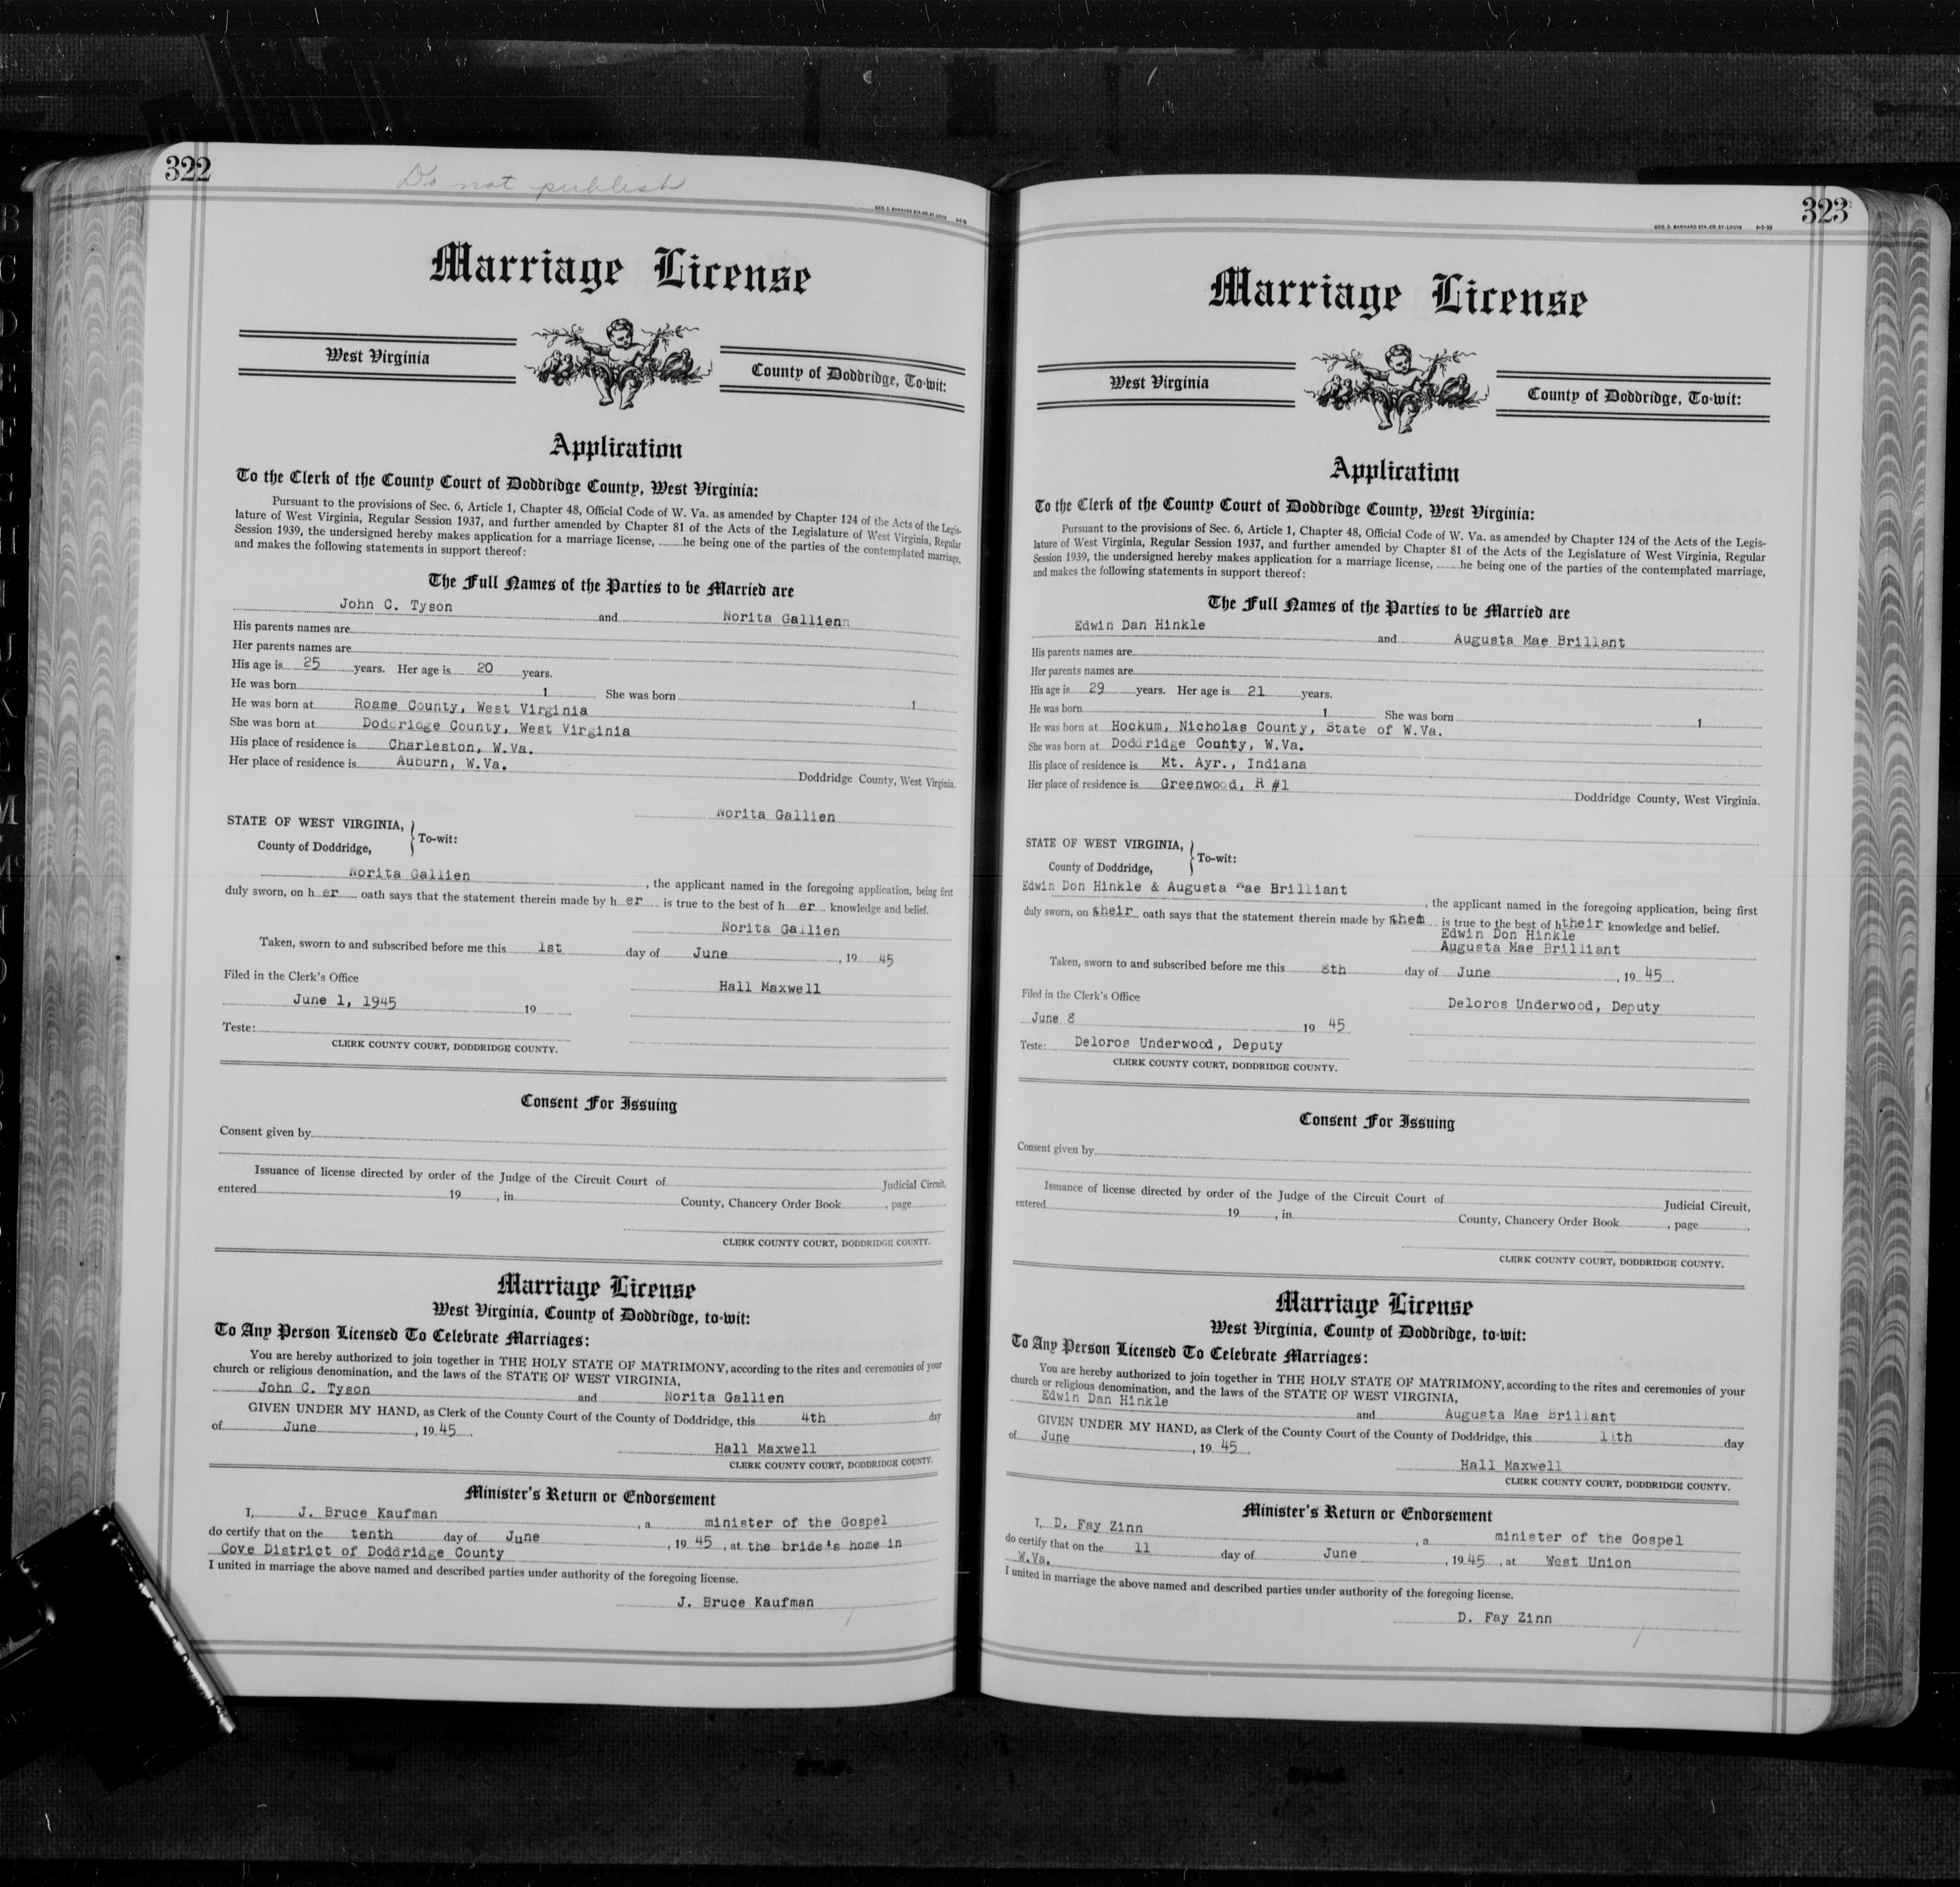 322
Do not publish
GEO. D. BARNARD STA. CO. ST. LOUIS
Marriage License
West Virginia
County of Doddridge, To-wit:
Application
To the Clerk of the County Court of Doddridge County, West Virginia:
Pursuant to the provisions of Sec. 6, Article 1, Chapter 48, Official Code of W. Va. as amended by Chapter 124 of the Acts of the Legis-
lature of West Virginia, Regular Session 1937, and further amended by Chapter 81 of the Acts of the Legislature of West Virginia, Regular
Session 1939, the undersigned hereby makes application for a marriage license, he being one of the parties of the contemplated marriage,
and makes the following statements in support thereof:
The Full Names of the Parties to be Married are
John C. Tyson and Norita Gallienn
His parents names are
Her parents names are
His age is 25 years. Her age is 20 years.
He was born 1 She was born 1
He was born at Roame County, West Virginia
She was born at Doddridge County, West Virginia
His place of residence is Charleston, W.Va.
Her place of residence is Auburn, W.Va.
Doddridge County, West Virginia.
Norita Gallien
STATE OF WEST VIRGINIA,
County of Doddridge, } To-wit:
Norita Gallien, the applicant named in the foregoing application, being first
duly sworn, on h er oath says that the statement therein made by h er is true to the best of h er knowledge and belief.
Norita Gallien
Taken, sworn to and subscribed before me this 1st day of June, 19 45
Filed in the Clerk's Office
Hall Maxwell
June 1, 1945 19
Teste:
CLERK COUNTY COURT, DODDRIDGE COUNTY.
Consent For Issuing
Consent given by
Issuance of license directed by order of the Judge of the Circuit Court of Judicial Circuit,
entered 19 , in County, Chancery Order Book , page
CLERK COUNTY COURT, DODDRIDGE COUNTY.
Marriage License
West Virginia, County of Doddridge, to-wit:
To Any Person Licensed To Celebrate Marriages:
You are hereby authorized to join together in THE HOLY STATE OF MATRIMONY, according to the rites and ceremonies of your
church or religious denomination, and the laws of the STATE OF WEST VIRGINIA,
John C. Tyson and Norita Gallien
GIVEN UNDER MY HAND, as Clerk of the County Court of the County of Doddridge, this 4th day
of June, 19 45.
Hall Maxwell
CLERK COUNTY COURT, DODDRIDGE COUNTY.
Minister's Return or Endorsement
I, J. Bruce Kaufman, a minister of the Gospel
do certify that on the tenth day of June, 19 45, at the bride's home in
Cove District of Doddridge County
I united in marriage the above named and described parties under authority of the foregoing license.
J. Bruce Kaufman
323
GEO. D. BARNARD STA. CO. ST. LOUIS 4-5-39
Marriage License
West Virginia
County of Doddridge, To-wit:
Application
To the Clerk of the County Court of Doddridge County, West Virginia:
Pursuant to the provisions of Sec. 6, Article 1, Chapter 48, Official Code of W. Va. as amended by Chapter 124 of the Acts of the Legis-
lature of West Virginia, Regular Session 1937, and further amended by Chapter 81 of the Acts of the Legislature of West Virginia, Regular
Session 1939, the undersigned hereby makes application for a marriage license, he being one of the parties of the contemplated marriage,
and makes the following statements in support thereof:
The Full Names of the Parties to be Married are
Edwin Dan Hinkle and Augusta Mae Brillant
His parents names are
Her parents names are
His age is 29 years. Her age is 21 years.
He was born 1 She was born 1
He was born at Hockum, Nicholas County, State of W.Va.
She was born at Doddridge County, W.Va.
His place of residence is Mt. Ayr., Indiana
Her place of residence is Greenwood, R #1
Doddridge County, West Virginia.
STATE OF WEST VIRGINIA,
County of Doddridge, } To-wit:
Edwin Don Hinkle & Augusta Mae Brilliant, the applicant named in the foregoing application, being first
duly sworn, on their oath says that the statement therein made by them is true to the best of htheir knowledge and belief.
Edwin Don Hinkle
Augusta Mae Brilliant
Taken, sworn to and subscribed before me this 8th day of June, 19 45.
Filed in the Clerk's Office
Deloros Underwood, Deputy
June 8 19 45
Teste: Deloros Underwood, Deputy
CLERK COUNTY COURT, DODDRIDGE COUNTY.
Consent For Issuing
Consent given by
Issuance of license directed by order of the Judge of the Circuit Court of Judicial Circuit,
entered 19 , in County, Chancery Order Book , page .
CLERK COUNTY COURT, DODDRIDGE COUNTY.
Marriage License
West Virginia, County of Doddridge, to-wit:
To Any Person Licensed To Celebrate Marriages:
You are hereby authorized to join together in THE HOLY STATE OF MATRIMONY, according to the rites and ceremonies of your
church or religious denomination, and the laws of the STATE OF WEST VIRGINIA,
Edwin Dan Hinkle and Augusta Mae Brillant
GIVEN UNDER MY HAND, as Clerk of the County Court of the County of Doddridge, this 11th day
of June, 19 45.
Hall Maxwell
CLERK COUNTY COURT, DODDRIDGE COUNTY.
Minister's Return or Endorsement
I, D. Fay Zinn, a minister of the Gospel
do certify that on the 11 day of June, 19 45, at West Union
W.Va.
I united in marriage the above named and described parties under authority of the foregoing license.
D. Fay Zinn